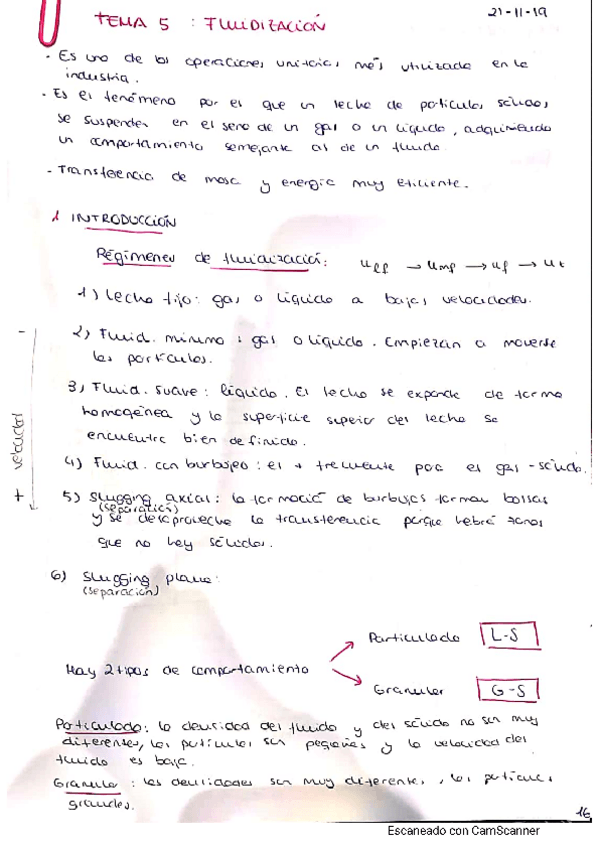 21-11-19
TEMA 5 : FLUIDIZACIÓN
· Es una de las operaciones unitarias más utilizada en la
industria.
· Es el fenómeno por el que un lecho de partículas sólidas
se suspenden en el seno de un gas o un líquido, adquiriendo
un comportamiento semejante al de un fluido.
- Transferencia de masa y energía muy eficiente.
1 INTRODUCCIÓN
Régimenes de fluidización: → umf → uf → ut
1) Lecho fijo: gas o líquido a bajas velocidades.
2) Fluid. mínima : gas o líquido. Empiezan a moverse
las partículas.
3) Fluid. suave: líquido. El lecho se expande de forma
homogénea y la superficie superior del lecho se
encuentra bien definida.
4) Fluid. con burbujeo: el + frecuente para el gas-sólido.
5) Slugging axial: la formació de burbujas forman bolsas
(separación)
y se desaprovecha la transferencia porque habrá zonas
que no hay sólidos.
6) Slugging plano:
(separación)
- velocidad +
Hay 2 tipos de comportamiento
Particulado L-S
Granular G-S
Particulado: la densidad del fluido y del sólido no son muy
diferentes, las partículas son pequeñas y la velocidad del
fluido es baja.
Granular : las densidades son muy diferentes, las partículas
grandes.
16
Escaneado con CamScanner